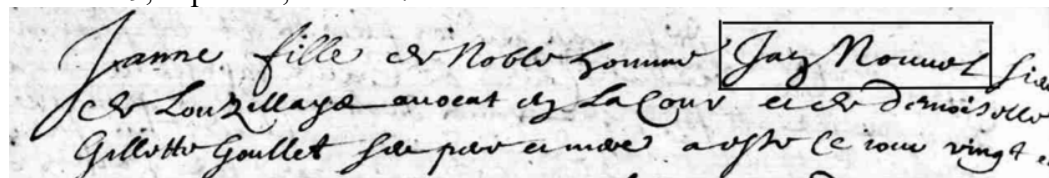 Janne fille de Noble homme Jan Nouuel sieu
de Louzillaye auocat en la Cour et de damoiselle
Gillette Goullet ses pere et mere a este ce iour vingt e